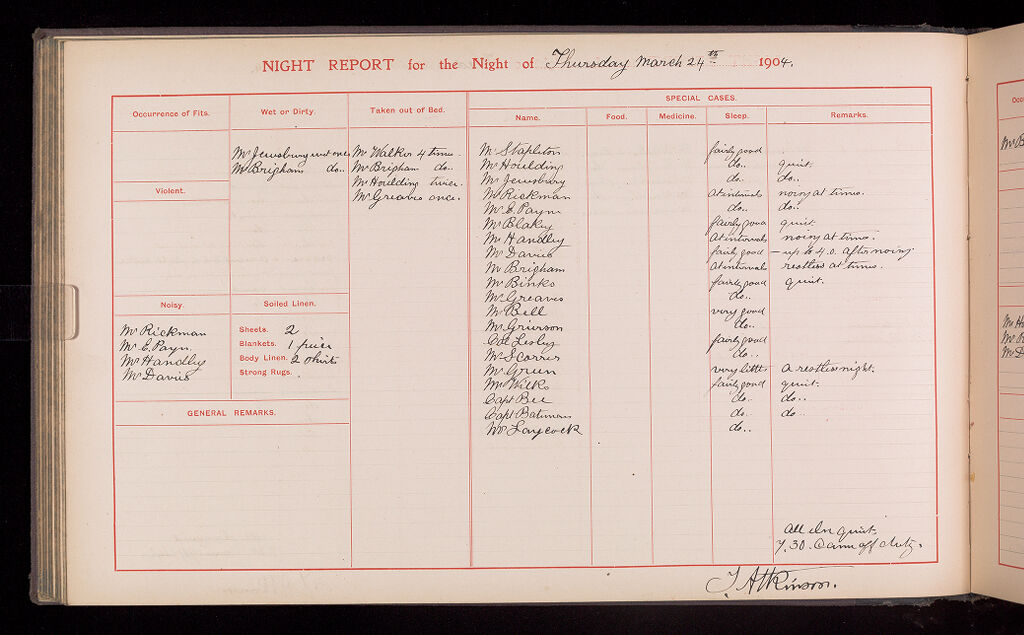 NIGHT REPORT for the Night of Thursday March 24th 1904.
Occurrence of Fits.
Wet or Dirty.
Mr Jewsbury wet once
Mr Brigham do..
Taken out of Bed.
Mr Walker 4 times.
Mr Brigham do..
Mr Houlding twice.
Mr Greaves once.
Violent.
Noisy.
Mr Rickman
Mr E. Payn.
Mr Handley
Mr Davies
Soiled Linen.
Sheets. 2
Blankets. 1 piece
Body Linen. 2 shirts
Strong Rugs.
GENERAL REMARKS.
SPECIAL CASES.
Name. Food. Medicine. Sleep. Remarks.
Mr Stapleton fairly good
Mr Houlding do.. quiet.
Mr Jewsbury do.. do..
Mr Rickman At intervals noisy at times.
Mr E. Payn do.. do..
Mr Blakey fairly good quiet.
Mr Handley At intervals noisy at times.
Mr Davies fairly good — up to 4.0. after noisy
Mr Brigham At intervals restless at times.
Mr Binks fairly good quiet.
Mr Greaves do..
Mr Bell very good
Mr Grierson do..
Col Lesley fairly good
Mr Scorrer do..
Mr Green very little a restless night.
Mr Wilks fairly good quiet.
Capt Bee do. do..
Capt Bateman do. do..
Mr Laycock do..
All else quiet.
7.30. Came off duty.
T. Atkinson.